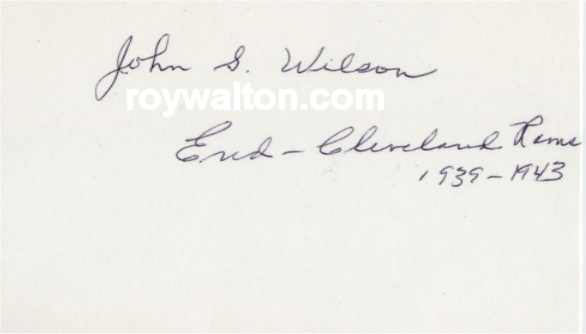 John S. Wilson
roywalton.com
End – Cleveland Rams
1939–1943